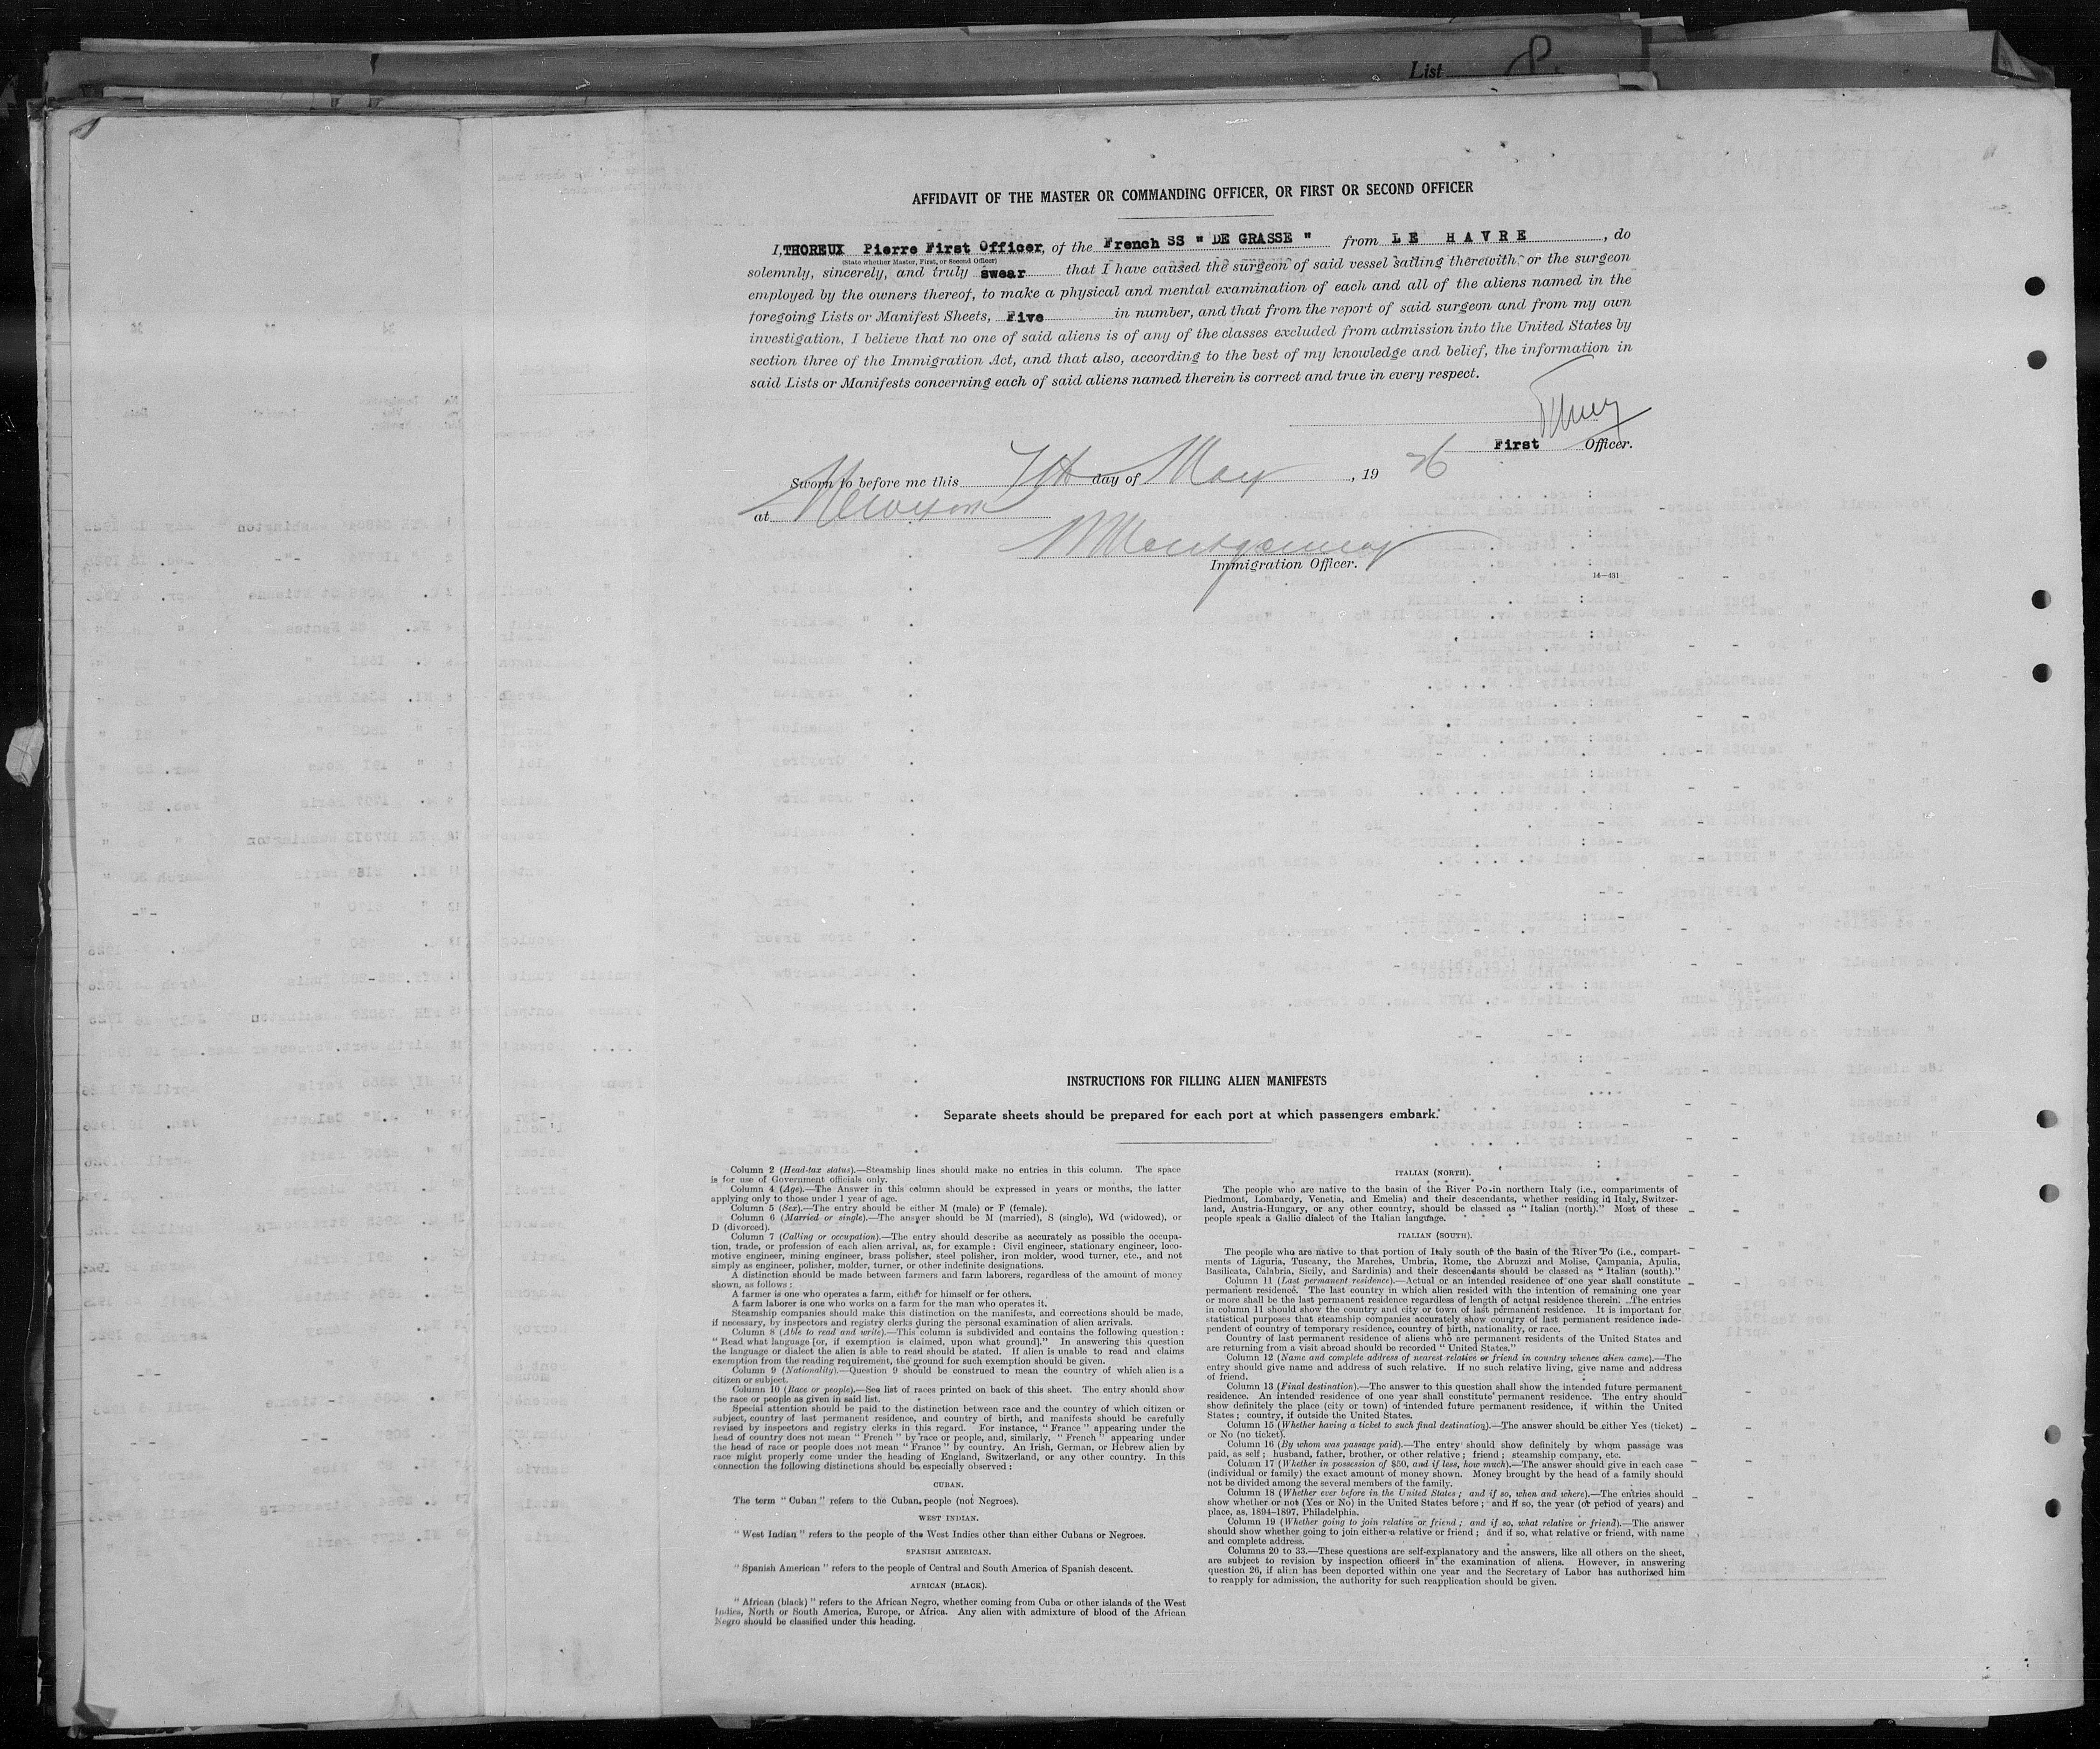 List
AFFIDAVIT OF THE MASTER OR COMMANDING OFFICER, OR FIRST OR SECOND OFFICER
I, THOREUX Pierre First Officer, of the French SS " DE GRASSE " from LE HAVRE, do
(State whether Master, First, or Second Officer)
solemnly, sincerely, and truly swear that I have caused the surgeon of said vessel sailing therewith, or the surgeon
employed by the owners thereof, to make a physical and mental examination of each and all of the aliens named in the
foregoing Lists or Manifest Sheets, Five in number, and that from the report of said surgeon and from my own
investigation, I believe that no one of said aliens is of any of the classes excluded from admission into the United States by
section three of the Immigration Act, and that also, according to the best of my knowledge and belief, the information in
said Lists or Manifests concerning each of said aliens named therein is correct and true in every respect.
First Officer.
Sworn to before me this 7th day of May, 1926
at New York
Montgomery
Immigration Officer.
14—431
INSTRUCTIONS FOR FILLING ALIEN MANIFESTS
Separate sheets should be prepared for each port at which passengers embark.
Column 2 (Head-tax status).—Steamship lines should make no entries in this column. The space
is for use of Government officials only.
Column 4 (Age).—The Answer in this column should be expressed in years or months, the latter
applying only to those under 1 year of age.
Column 5 (Sex).—The entry should be either M (male) or F (female).
Column 6 (Married or single).—The answer should be M (married), S (single), Wd (widowed), or
D (divorced).
Column 7 (Calling or occupation).—The entry should describe as accurately as possible the occupa-
tion, trade, or profession of each alien arrival, as, for example: Civil engineer, stationary engineer, loco-
motive engineer, mining engineer, brass polisher, steel polisher, iron molder, wood turner, etc., and not
simply as engineer, polisher, molder, turner, or other indefinite designations.
A distinction should be made between farmers and farm laborers, regardless of the amount of money
shown, as follows:
A farmer is one who operates a farm, either for himself or for others.
A farm laborer is one who works on a farm for the man who operates it.
Steamship companies should make this distinction on the manifests, and corrections should be made,
if necessary, by inspectors and registry clerks during the personal examination of alien arrivals.
Column 8 (Able to read and write).—This column is subdivided and contains the following question:
" Read what language [or, if exemption is claimed, upon what ground]." In answering this question
the language or dialect the alien is able to read should be stated. If alien is unable to read and claims
exemption from the reading requirement, the ground for such exemption should be given.
Column 9 (Nationality).—Question 9 should be construed to mean the country of which alien is a
citizen or subject.
Column 10 (Race or people).—See list of races printed on back of this sheet. The entry should show
the race or people as given in said list.
Special attention should be paid to the distinction between race and the country of which citizen or
subject, country of last permanent residence, and country of birth, and manifests should be carefully
revised by inspectors and registry clerks in this regard. For instance, " France " appearing under the
head of country does not mean " French " by race or people, and, similarly, " French " appearing under
the head of race or people does not mean " France " by country. An Irish, German, or Hebrew alien by
race might properly come under the heading of England, Switzerland, or any other country. In this
connection the following distinctions should be especially observed:
CUBAN.
The term " Cuban " refers to the Cuban people (not Negroes).
WEST INDIAN.
" West Indian " refers to the people of the West Indies other than either Cubans or Negroes.
SPANISH AMERICAN.
" Spanish American " refers to the people of Central and South America of Spanish descent.
AFRICAN (BLACK).
" African (black) " refers to the African Negro, whether coming from Cuba or other islands of the West
Indies, North or South America, Europe, or Africa. Any alien with admixture of blood of the African
Negro should be classified under this heading.
ITALIAN (NORTH).
The people who are native to the basin of the River Po in northern Italy (i.e., compartments of
Piedmont, Lombardy, Venetia, and Emelia) and their descendants, whether residing in Italy, Switzer-
land, Austria-Hungary, or any other country, should be classed as " Italian (north)." Most of these
people speak a Gallic dialect of the Italian language.
ITALIAN (SOUTH).
The people who are native to that portion of Italy south of the basin of the River Po (i.e., compart-
ments of Liguria, Tuscany, the Marches, Umbria, Rome, the Abruzzi and Molise, Campania, Apulia,
Basilicata, Calabria, Sicily, and Sardinia) and their descendants should be classed as " Italian (south)."
Column 11 (Last permanent residence).—Actual or an intended residence of one year shall constitute
permanent residence. The last country in which alien resided with the intention of remaining one year
or more shall be the last permanent residence regardless of length of actual residence therein. The entries
in column 11 should show the country and city or town of last permanent residence. It is important for
statistical purposes that steamship companies accurately show country of last permanent residence inde-
pendent of country of temporary residence, country of birth, nationality, or race.
Country of last permanent residence of aliens who are permanent residents of the United States and
are returning from a visit abroad should be recorded " United States."
Column 12 (Name and complete address of nearest relative or friend in country whence alien came).—The
entry should give name and address of such relative. If no such relative living, give name and address
of friend.
Column 13 (Final destination).—The answer to this question shall show the intended future permanent
residence. An intended residence of one year shall constitute permanent residence. The entry should
show definitely the place (city or town) of intended future permanent residence, if within the United
States; country, if outside the United States.
Column 15 (Whether having a ticket to such final destination).—The answer should be either Yes (ticket)
or No (no ticket).
Column 16 (By whom was passage paid).—The entry should show definitely by whom passage was
paid, as self; husband, father, brother, or other relative; friend; steamship company, etc.
Column 17 (Whether in possession of $50, and if less, how much).—The answer should give in each case
(individual or family) the exact amount of money shown. Money brought by the head of a family should
not be divided among the several members of the family.
Column 18 (Whether ever before in the United States; and if so, when and where).—The entries should
show whether or not (Yes or No) in the United States before; and if so, the year (or period of years) and
place, as, 1894-1897, Philadelphia.
Column 19 (Whether going to join relative or friend; and if so, what relative or friend).—The answer
should show whether going to join either a relative or friend; and if so, what relative or friend, with name
and complete address.
Columns 20 to 33.—These questions are self-explanatory and the answers, like all others on the sheet,
are subject to revision by inspection officers in the examination of aliens. However, in answering
question 26, if alien has been deported within one year and the Secretary of Labor has authorized him
to reapply for admission, the authority for such reapplication should be given.